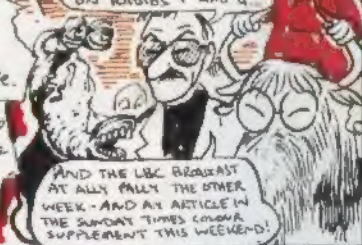 ON RADIOS 1 AND 4...
AND THE LBC BROADCAST
AT ALLY PALLY THE OTHER
WEEK - AND AN ARTICLE IN
THE SUNDAY TIMES COLOUR
SUPPLEMENT THIS WEEKEND!